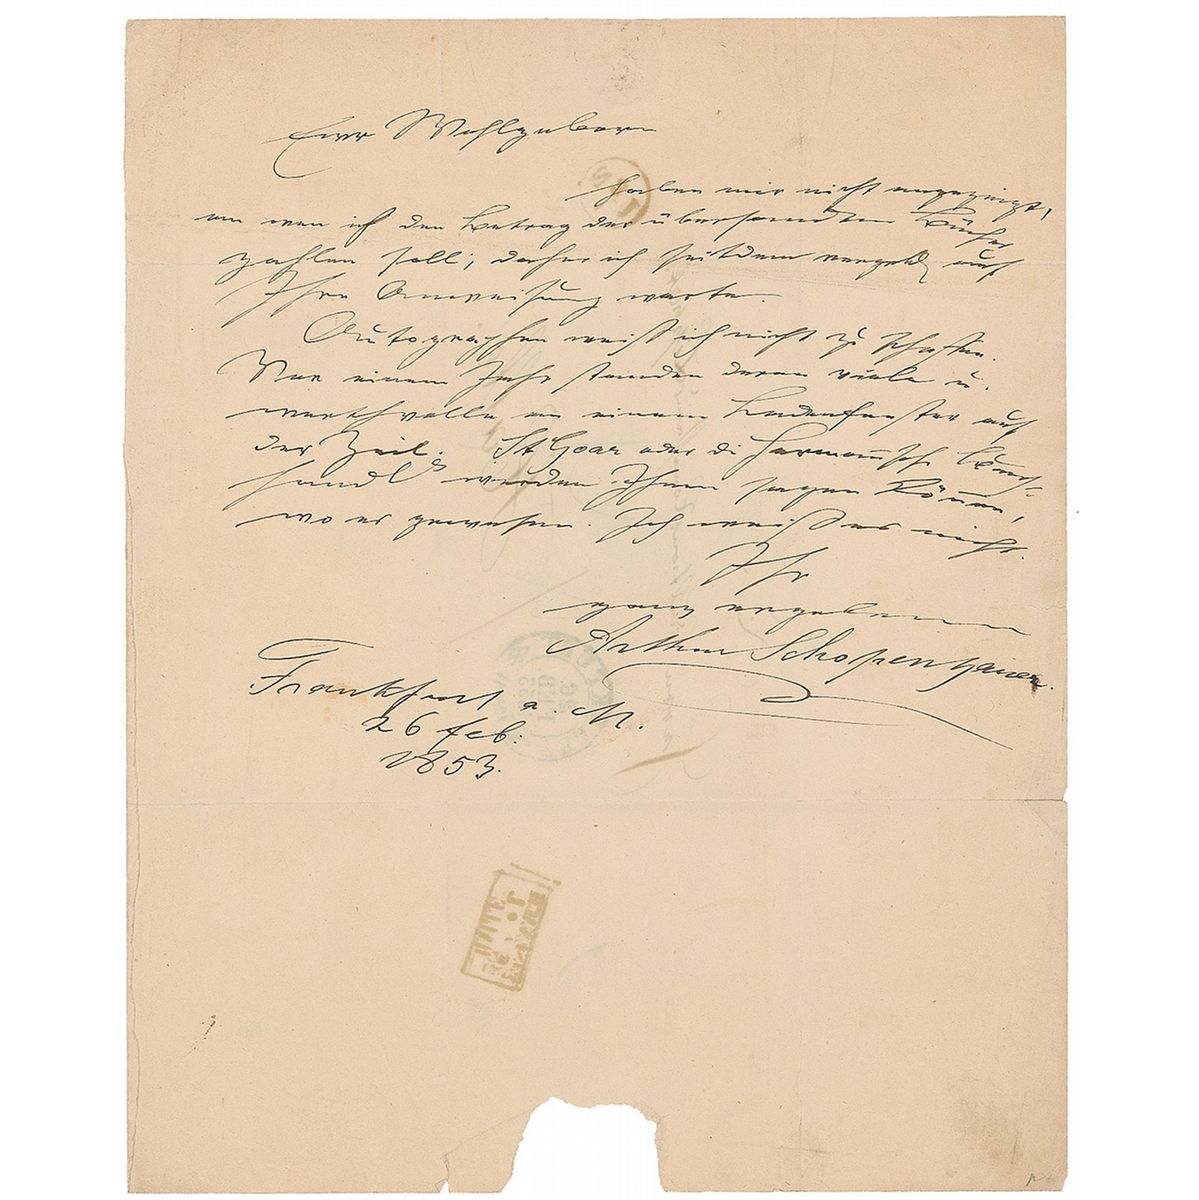 Ewr Wohlgeborn
haben mir nicht angezeigt,
an wen ich den Betrag der übersandten Bücher
zahlen soll; daher ich seitdem vergebl. auf
Ihre Anweisung warte.
Autographen weiß ich nicht zu schaffen.
Vor einem Jahr standen deren viele u.
werthvolle an einem Ladenfenster auf
der Zeil. St Goar oder die Hermannsche Buch-
handlg werden Ihnen sagen können,
wo es gewesen. Ich weiß es nicht.
Ihr
ganz ergebener
Arthur Schopenhauer.
Frankfurt a. M.
26 Feb.
1853.